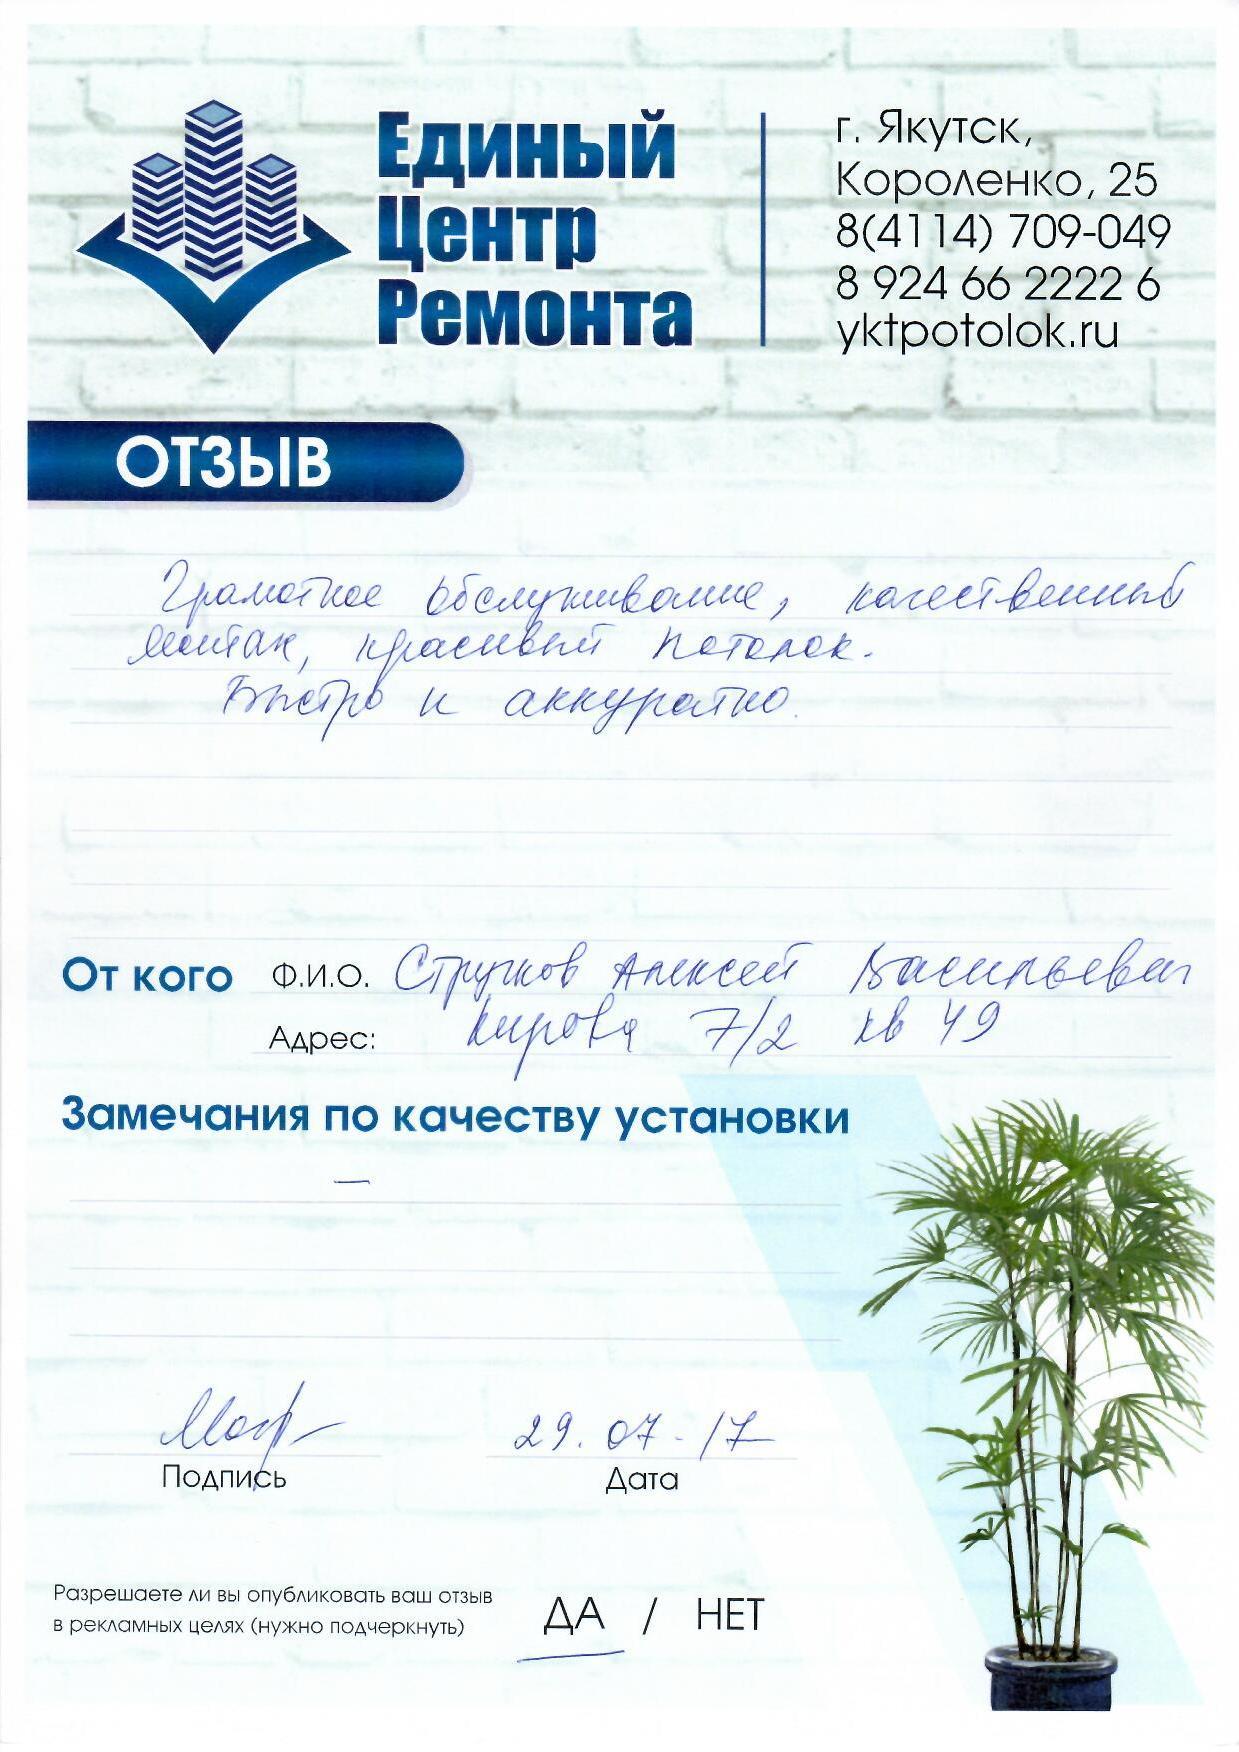 Единый
Центр
Ремонта
г. Якутск,
Короленко, 25
8(4114) 709-049
8 924 66 2222 6
yktpotolok.ru
ОТЗЫВ
Грамотное обслуживание, качественный
монтаж, красивый потолок.
Быстро и аккуратно.
От кого Ф.И.О. Стручков Алексей Васильевич
Адрес: Кирова 7/2 кв 49
Замечания по качеству установки
—
29.07.17
Подпись Дата
Разрешаете ли вы опубликовать ваш отзыв
в рекламных целях (нужно подчеркнуть) ДА / НЕТ